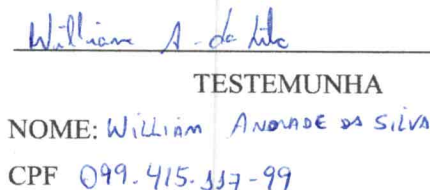 William A. da Silva
TESTEMUNHA
NOME: WILLIAM ANDRADE DA SILVA
CPF 099.415.117-99